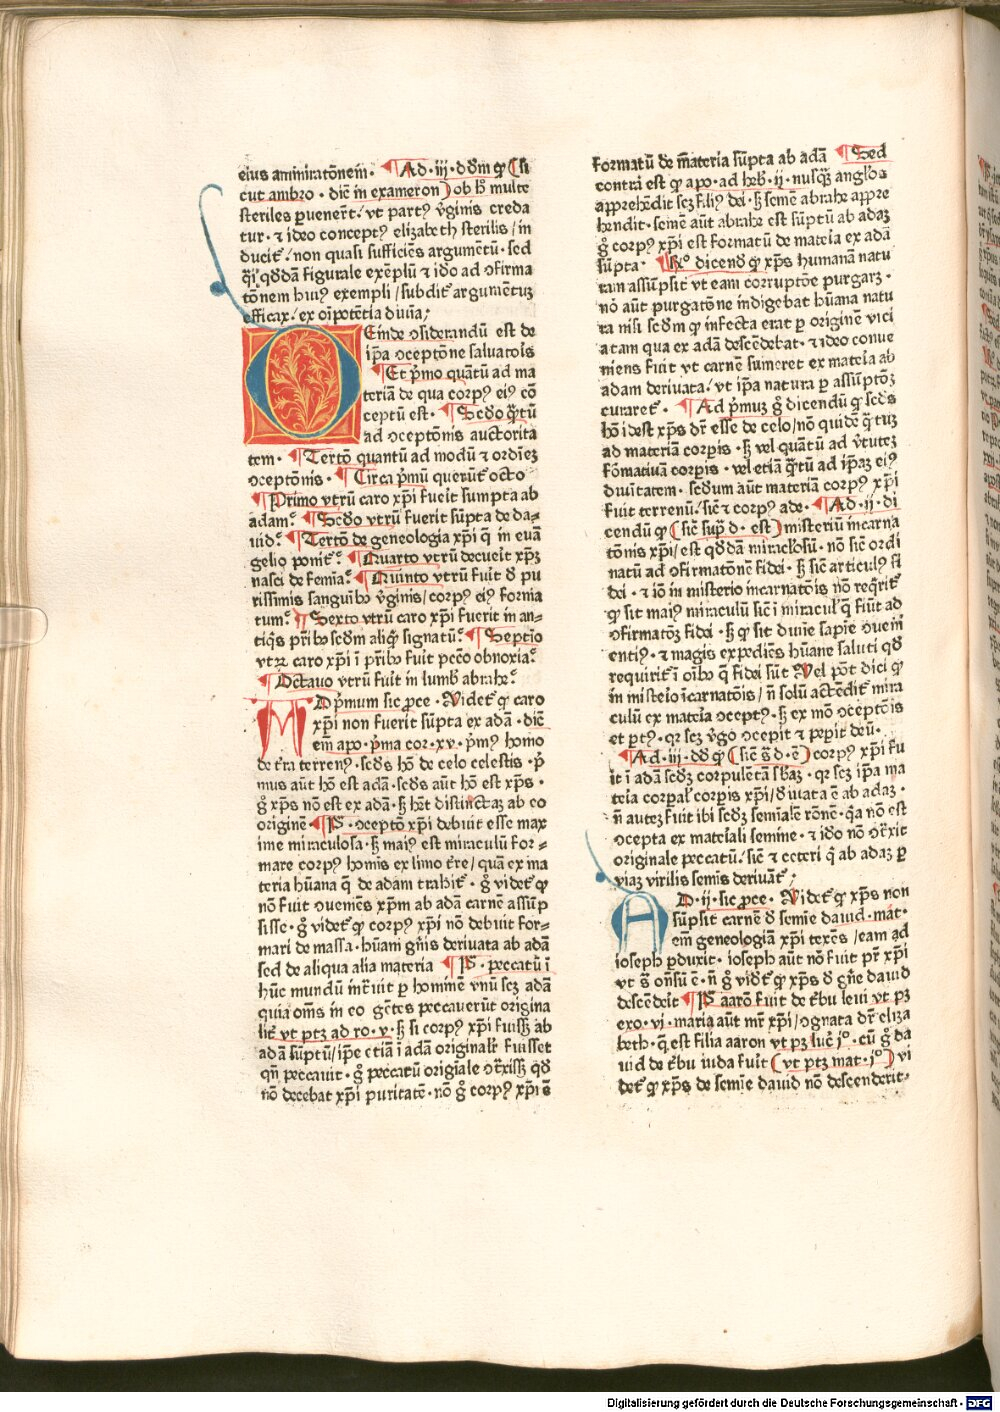 eius ammiratōnem · Ad · iij · ddm qꝫ (si
cut ambro · diē in exameron) ob hͦ multe
steriles ꝑuenerūt · vt partꝰ v̄ginis creda
tur · ⁊ ideo conceptꝰ elizabeth sterilis / in
ducit̄ / non quasi sufficiēs argumētū · sed
qͥ qddā figurale exēplū ⁊ ido ad ꝯfirma
tōnem huiꝰ exempli / subdit argumētuꝫ
efficax / ex oīpotētia diuīa ;
Einde ꝯsiderandū est de
ip̄a ꝯceptōne saluatoīs
Et p̄mo quātū ad ma
teriā de qua corpꝰ eiꝰ cō
ceptū est · Scdo qͣtū
ad ꝯceptōnis auctorita
tem · Tertō quantū ad modū ⁊ ordīeꝫ
ꝯceptōnis · Circa p̄mū querūt̄ octo
Primo vtrū caro xp̄i fueīt sumpta ab
adam · Scdo vtrū fuerit sūpta de da-
uid · Tertō de geneologia xp̄i q̄ in euā
gelio ponit̄ · Quarto vtrū decueīt xp̄ꝫ
nasci de femīa · Quinto vtrū fuīt d pu
rissimis sanguībꝰ v̄ginis / corpꝰ eiꝰ forma
tum · Sexto vtrū caro xp̄i fuerit in an-
tiqͥs p̄ribꝰ scdm aliqͥd signatū · Septīo
vtꝝ caro xp̄i ī p̄ribꝰ fuit pccō obnoxia ·
Octauo vtrū fuit in lumbꝭ abrahe ·
AD p̄mum sic ꝓce · Videt̄ qꝫ caro
xp̄i non fuerit sūpta ex adā · diē
em̄ apo · p̄ma cor · xv · p̄mꝰ homo
de t̄ra terrenꝰ · scds hō de celo celestis · p̄
mus aūt hō est adā · scds aūt hō est xp̄s ·
g̊ xp̄s nō est ex adā · ꝫ hēt distinctaꝫ ab eo
originē · P̄ꝰ · ꝯceptō xp̄i debuit esse max
ime miraculosa · ꝫ maiꝰ est miraculū for-
mare corpꝰ homīs ex limo t̄re / quā ex ma
teria hūana q̄ de adam trahit̄ · g̊ videt̄ qꝫ
nō fuit ꝯueniēs xp̄m ab adā carnē assūp
sisse · g̊ videt̄ qꝫ corpꝰ xp̄i nō debuit for-
mari de massa · hūani gn̄is deriuata ab adā
sed de aliqua alia materia P̄ꝰ · peccatū ī
hūc mundū int̄uit ꝑ hominē vnū scꝫ adā
quia om̄s in eo gētes peccauerūt origina
lit̄ vt ptꝫ ad ro · v · ꝫ si corpꝰ xp̄i fuissꝫ ab
adā sūptū / ip̄e etiā ī adā originalīt fuisset
qn̄ peccauit · g̊ peccatū origīale ꝯt̄xissꝫ qd
nō decebat xp̄i puritatē · nō g̊ corpꝰ xp̄i ē
formatū de m̄ateria sūpta ab adā Sed
contra est qꝫ apo · ad heb · ij · nusqͣꝫ angl̄os
apprehēdit scꝫ filiꝰ dei · ꝫ semē abrahe appre
hendit · semē aūt abrahe est sūptū ab adaꝫ
g̊ corpꝰ xp̄i est formatū de mateīa ex adā
sūpta · Rͦ dicend qꝫ xp̄s humanā natu
ram assūpsit vt eam corruptōe purgarꝫ ·
nō aūt purgatōne indigebat hūana natu
ra nisi scdm qꝫ infecta erat ꝑ originē vici
atam qua ex adā descēdebat · ⁊ ideo conue
niens fuit vt carnē sumeret ex mateīa ab
adam deriuata / vt ip̄a natura ꝑ assūptōꝫ
curaret̄ · Ad p̄muꝫ g̊ dicendū qꝫ scds
hō idest xp̄s dr̄ esse de celo / nō quidē qͣtuꝫ
ad materiā corpīs · ꝫ vel quātū ad v̄tuteꝫ
fōmatiuā corpīs · vel etiā qͣtū ad ip̄aꝫ eiꝰ
diuītatem · scdum aūt materiā corpꝰ xp̄i
fuit terrenū / sic̄ ⁊ corpꝰ ade · Ad · ij · di
cendū qꝫ (sic̄ supͣ d · est) misteriū incarna
tōnis xp̄i / est qddā miraclōsū · nō sic̄ ordi
natū ad ꝯfirmatōnē fidei · ꝫ sic̄ articulꝰ fi
dei · ⁊ iō in misterio incarnatoīs nō reqͥrit̄
qꝫ sit maiꝰ miraculū sic̄ ī miraculꝭ q̄ fiūt ad
ꝯfirmatōꝫ fidei · ꝫ qꝫ sit diuīe sapīe ꝯueni
entiꝰ · ⁊ magis expediēs hūane saluti qd
requirit̄ ī oībꝰ q̄ fidei sūt Vel pōt dici qꝫ
in misteīo īcarnatoīs / n̄ solū actēdit̄ mira
culū ex mateīa ꝯceptꝰ · ꝫ ex mō ꝯceptoīs
et ꝑtꝰ · qꝛ scꝫ v̄go ꝯcepit ⁊ peꝑit deū ·
Ad · iij · dd qꝫ (sic̄ s̄ d · ē) corpꝰ xp̄i fu
it ī adā scdꝫ corpulētā sb̄aꝫ · qꝛ scꝫ ip̄a ma
teīa corꝑal̄ corpīs xp̄i / diuata ē ab adaꝫ ·
n̄ auteꝫ fuit ibi scdꝫ semīale rōnē · qͣ nō est
ꝯcepta ex mateīali semīne · ⁊ ido nō ꝯt̄xit
originale peccatū / sic̄ ⁊ ceteri qͥ ab adaꝫ ꝑ
viaꝫ virilis semīs deriuāt̄ ;
AD · ij · sic ꝓce · Videt̄ qꝫ xp̄s non
sūpsit carnē d semīe dauid · mat ·
em̄ geneologiā xp̄i texēs / eam ad
ioseph ꝑduxit · ioseph aūt nō fuit pr̄ xp̄i
vt s̄ on̄sū ē · n̄ g̊ vidēt̄ qꝫ xp̄s d gn̄e dauid
descēdeīt P̄ꝰ aarō fuit de t̄bu leui vt pꝫ
exo · vi · maria aūt mr̄ xp̄i / ꝯgnata dr̄ eliza
beth · q̄ est filia aaron vt pꝫ luc̄ jͦ · cū g̊ da
uid de t̄bu iuda fuit̄ (vt ptꝫ mat · jͦ) vi
det̄ qꝫ xp̄s de semīe dauid nō descenderit ·
Digitalisierung gefördert durch die Deutsche Forschungsgemeinschaft - DFG